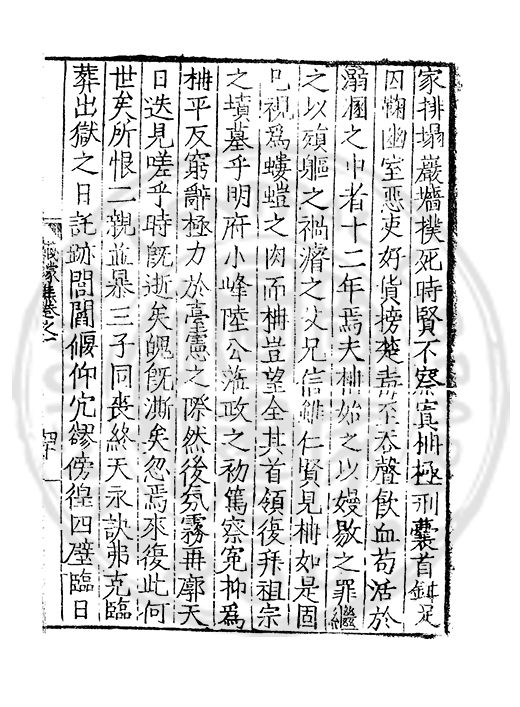 家排塌巖墻撲死時賢不察寘柟極刑囊首鉗足
囚鞫幽室惡吏好貨搒楚毒至吞聲飲血苟活於
溷溷之中者十二年焉夫柟始之以嫚敭之罪繼
之以頑軀之禍瘠之父兄信雠仁賢見柟如是固
已視爲螻螘之肉而柟豈望全其首領復拜祖宗
之墳墓乎明府小峰陸公蒞政之初篤察寃抑爲
柟平反窮辭極力於臺憲之際然後氛霧再廓天
日迭見嗟乎時旣逝矣魄旣澌矣忽焉來復此何
世矣所恨二親並暴三子同喪終天永訣弗克臨
葬出獄之日託跡閭閻偃仰宂繆傍徨四壁臨日
集卷之一